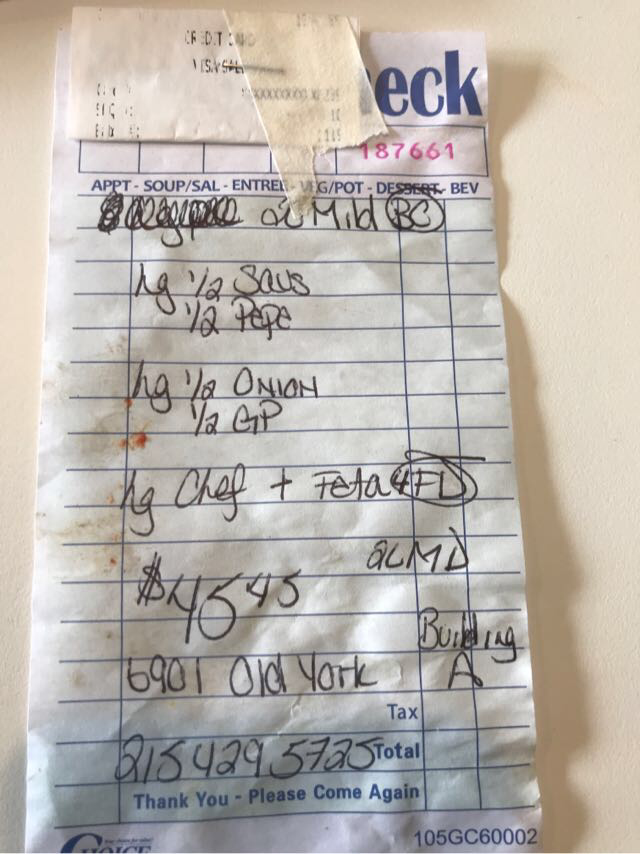 CREDIT CARD
VISA SALE
eck
187661
APPT - SOUP/SAL - ENTREE - VEG/POT - DESSERT - BEV
Mild BC
hg 1/2 Saus
1/2 Pepe
hg 1/2 ONION
1/2 GP
hg Chef + Feta 4 FD
$45 45
Building
6901 Old York A
Tax
215 429 5725 Total
Thank You - Please Come Again
CHOICE 105GC60002